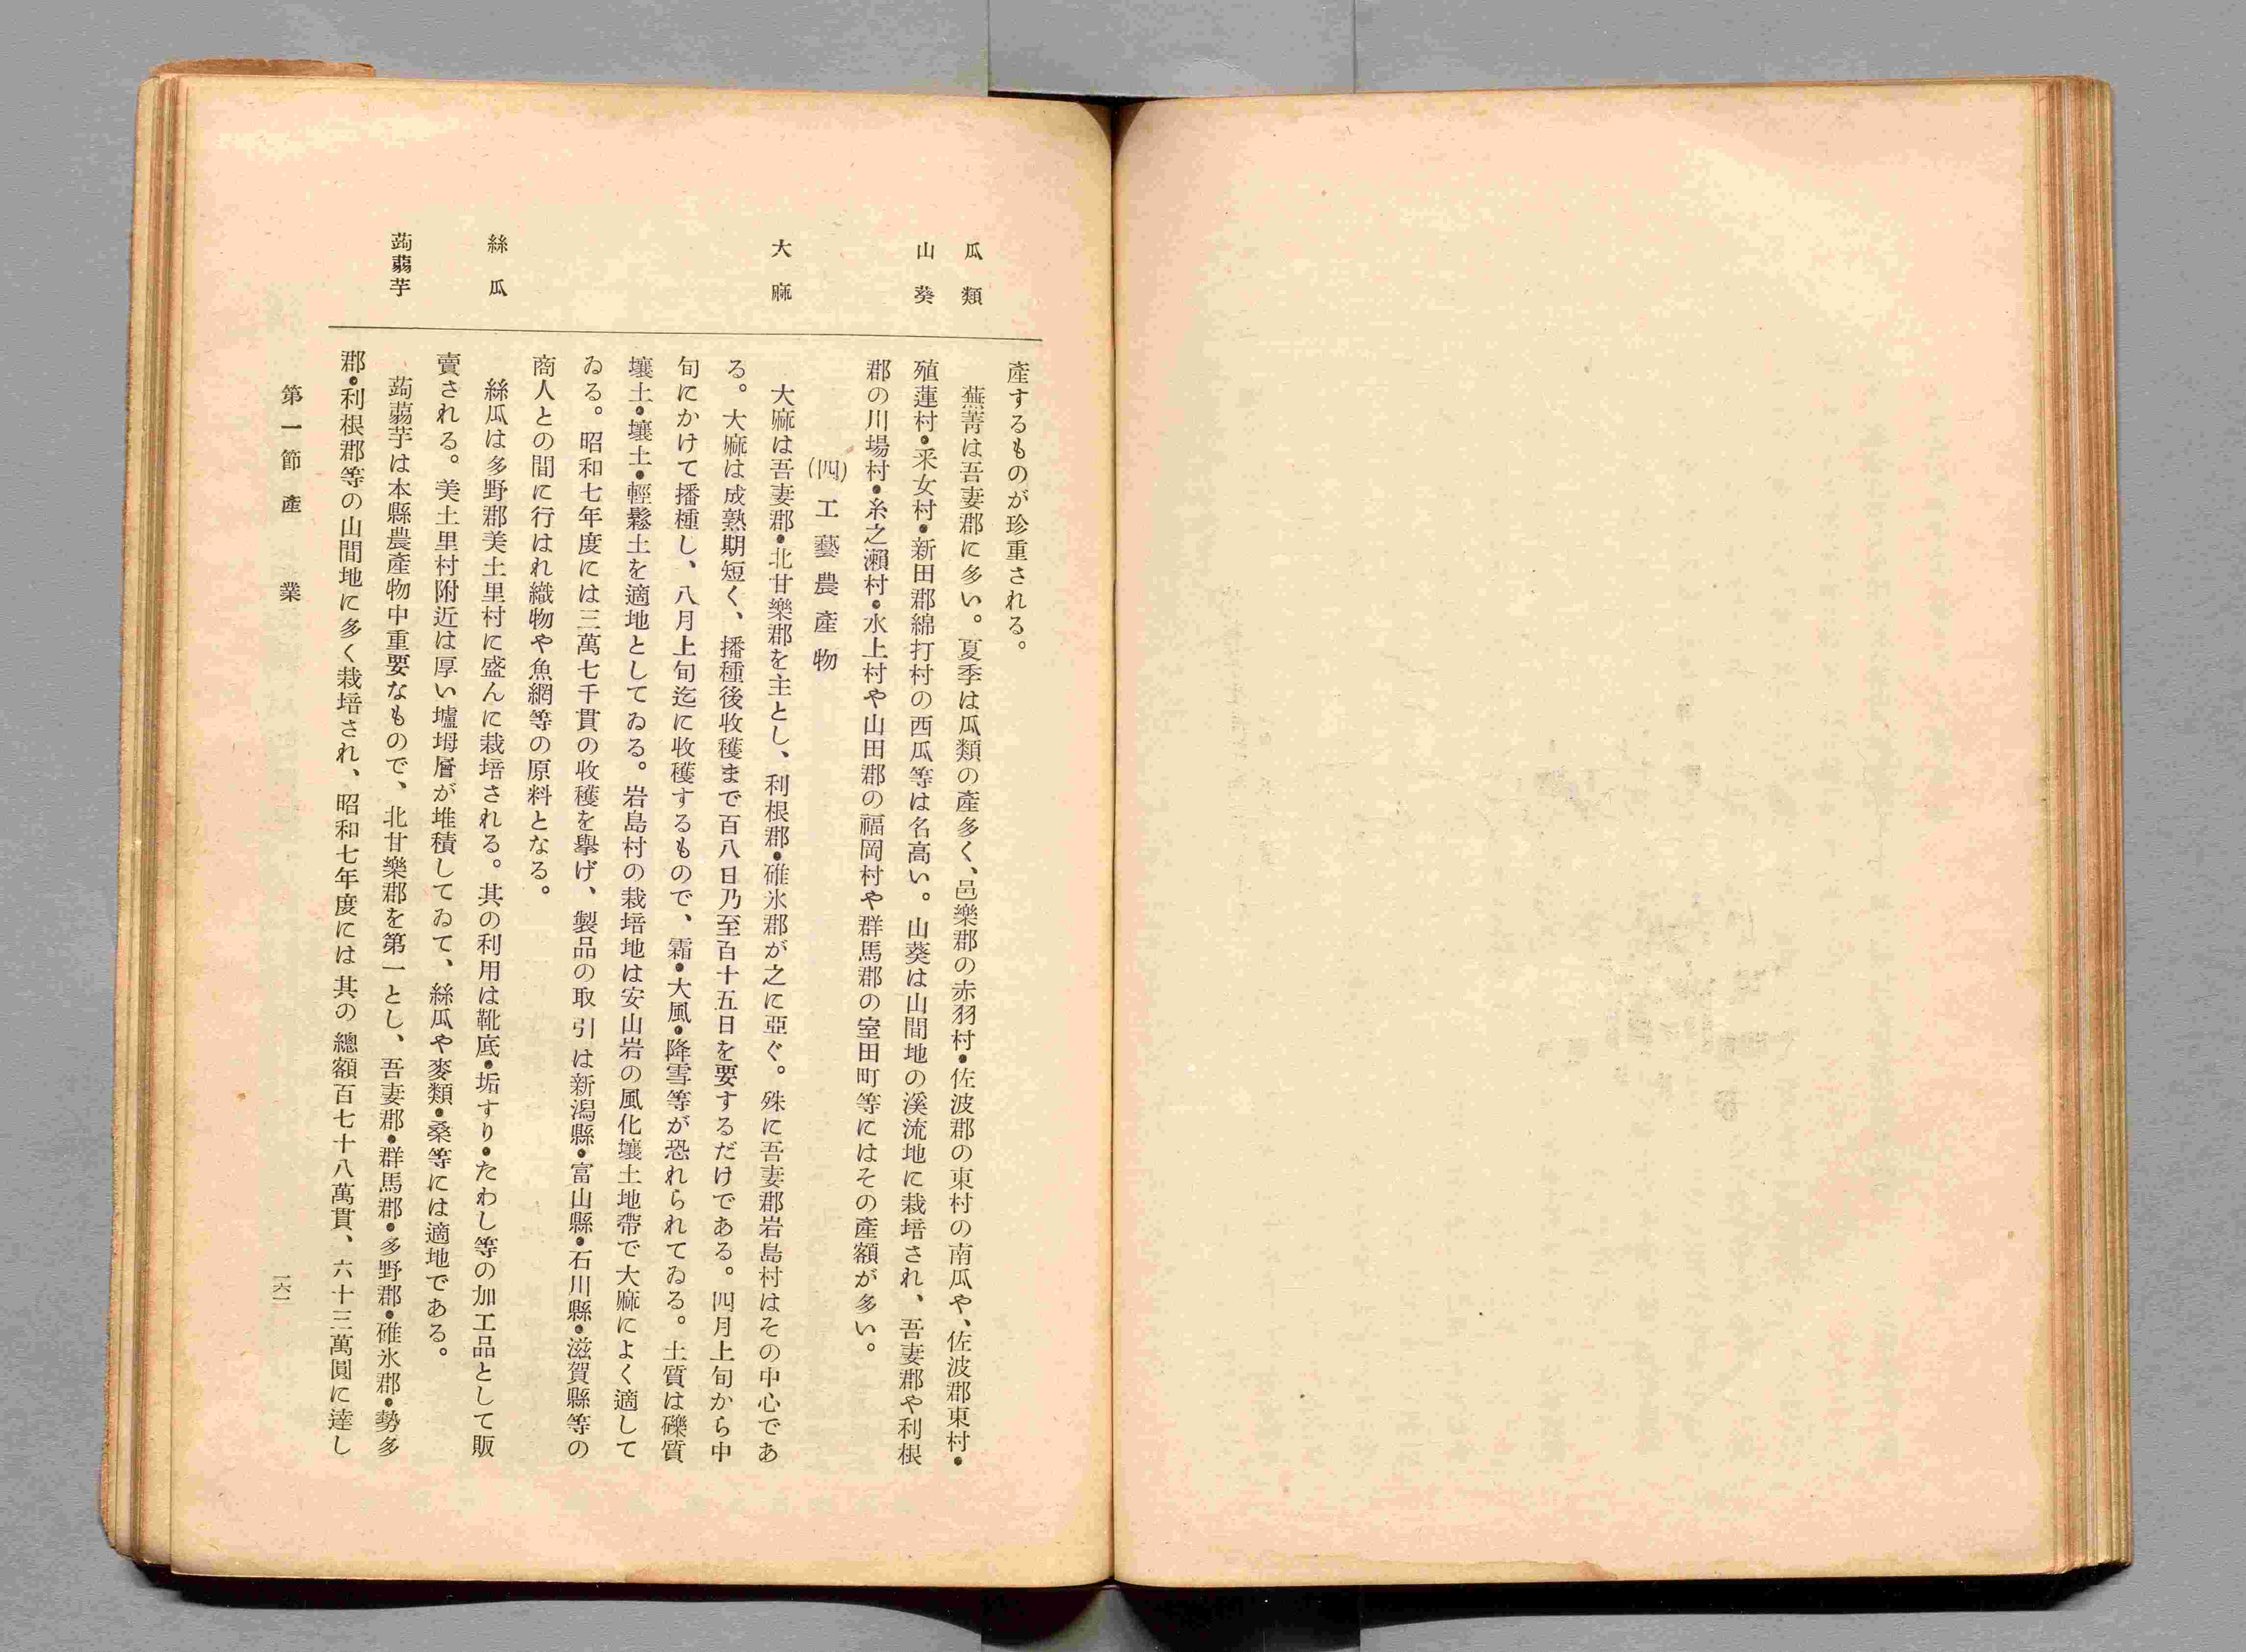 產するものが珍重される。
瓜類
蕪菁は吾妻郡に多い。夏季は瓜類の產多く、邑樂郡の赤羽村・佐波郡の東村の南瓜や、佐波郡東村・
山葵
殖蓮村・采女村・新田郡綿打村の西瓜等は名高い。山葵は山間地の溪流地に栽培され、吾妻郡や利根
郡の川場村・糸之瀨村・水上村や山田郡の福岡村や群馬郡の室田町等にはその產額が多い。
(四)工藝農產物
大麻
大麻は吾妻郡・北甘樂郡を主とし、利根郡・碓氷郡が之に亞ぐ。殊に吾妻郡岩島村はその中心であ
る。大麻は成熟期短く、播種後收穫まで百八日乃至百十五日を要するだけである。四月上旬から中
旬にかけて播種し、八月上旬迄に收穫するもので、霜・大風・降雪等が恐れられてゐる。土質は礫質
壤土・壤土・輕鬆土を適地としてゐる。岩島村の栽培地は安山岩の風化壤土地帶で大麻によく適して
ゐる。昭和七年度には三萬七千貫の收穫を擧げ、製品の取引は新潟縣・富山縣・石川縣・滋賀縣等の
商人との間に行はれ織物や魚網等の原料となる。
絲瓜
絲瓜は多野郡美土里村に盛んに栽培される。其の利用は靴底・垢すり・たわし等の加工品として販
賣される。美土里村附近は厚い壚坶層が堆積してゐて、絲瓜や麥類・桑等には適地である。
蒟蒻芋
蒟蒻芋は本縣農產物中重要なもので、北甘樂郡を第一とし、吾妻郡・群馬郡・多野郡・碓氷郡・勢多
郡・利根郡等の山間地に多く栽培され、昭和七年度には其の總額百七十八萬貫、六十三萬圓に達し
第一節 產業
一六一